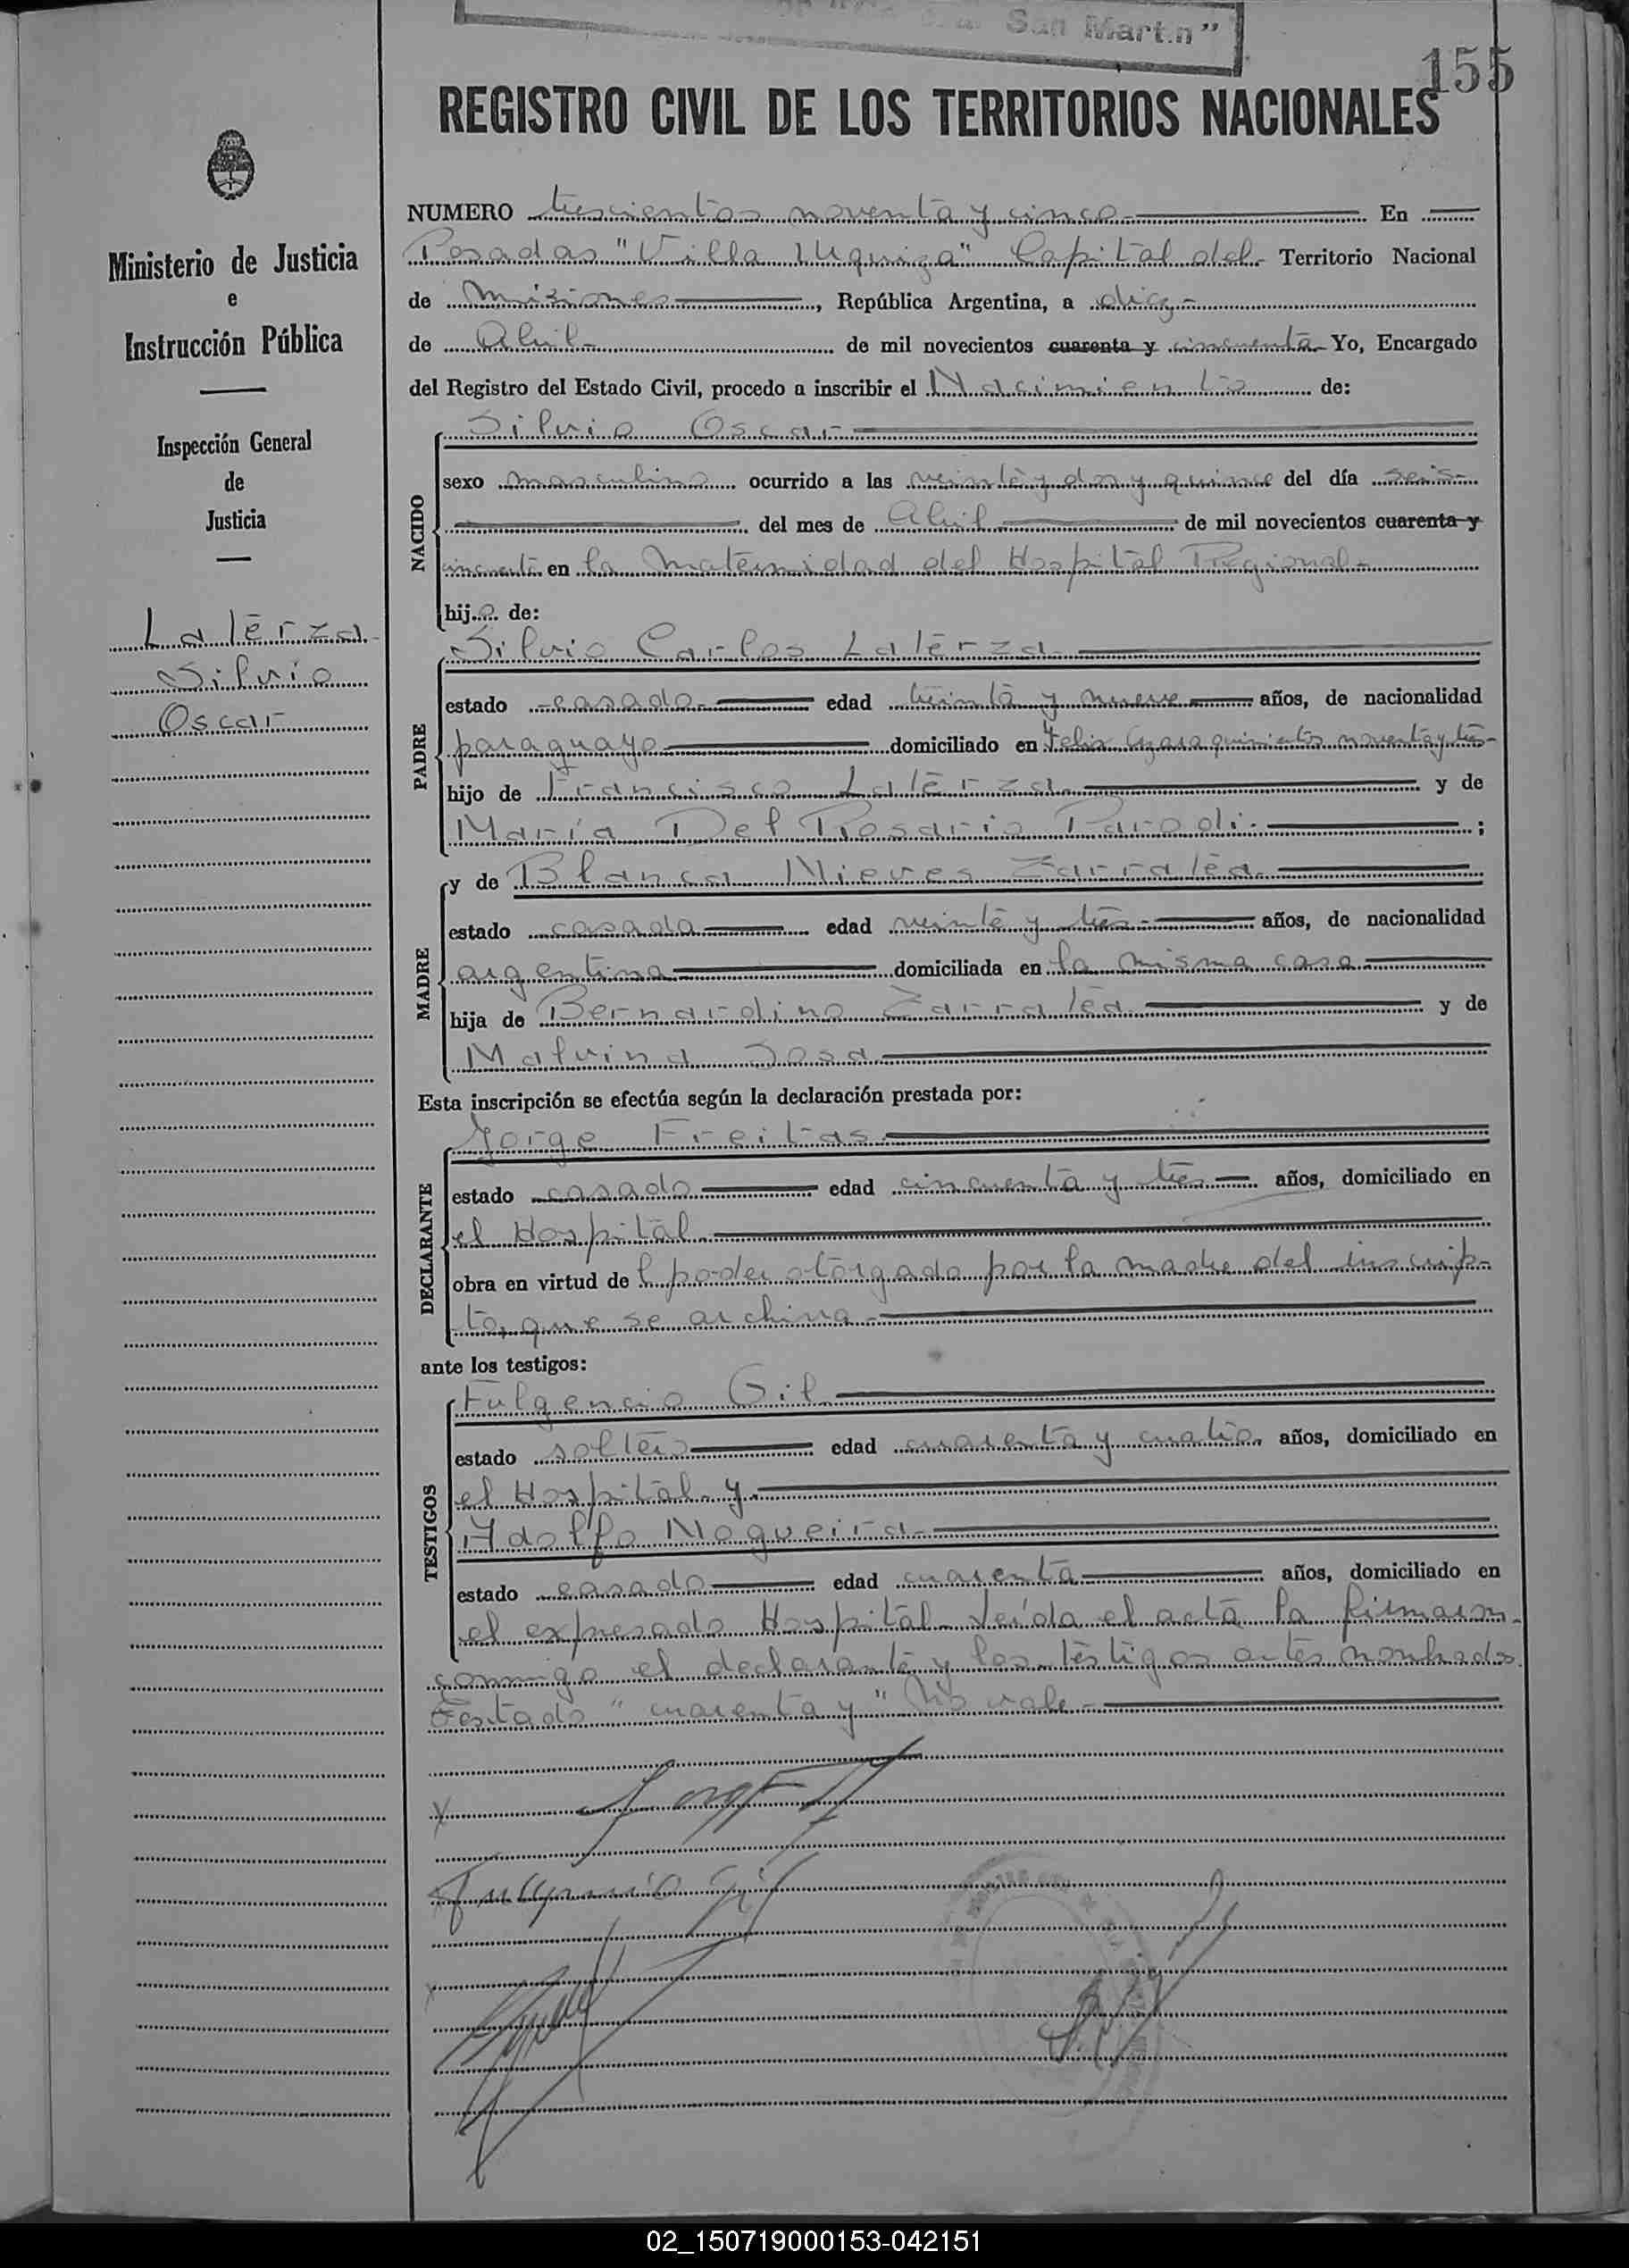 San Martin"
155
REGISTRO CIVIL DE LOS TERRITORIOS NACIONALES
Ministerio de Justicia
e
Instrucción Pública
Inspección General
de
Justicia
Laterza
Silvio
Oscar
NUMERO trescientos noventa y cinco En
Posadas "Villa Urquiza" Capital del Territorio Nacional
de Misiones, República Argentina, a diez
de Abril de mil novecientos cuarenta y cincuenta Yo, Encargado
del Registro del Estado Civil, procedo a inscribir el Nacimiento de:
NACIDO
Silvio Oscar
sexo masculino ocurrido a las veinte y dos y quince del día seis
del mes de Abril de mil novecientos cuarenta y
cincuenta en la Maternidad del Hospital Regional
hijo de:
PADRE
Silvio Carlos Laterza
estado casado edad treinta y nueve años, de nacionalidad
paraguayo domiciliado en Felix Azara quinientos noventa y tres
hijo de Francisco Laterza y de
María Del Rosario Parodi;
MADRE
y de Blanca Nieves Zarratea
estado casada edad veinte y tres años, de nacionalidad
argentina domiciliada en la misma casa
hija de Bernardino Zarratea y de
Malvina Sosa
Esta inscripción se efectúa según la declaración prestada por:
DECLARANTE
Jorge Freitas
estado casado edad cincuenta y tres años, domiciliado en
el Hospital
obra en virtud del poder otorgado por la madre del inscrip-
to, que se archiva
ante los testigos:
TESTIGOS
Fulgencio Gil
estado soltero edad cuarenta y cuatro, años, domiciliado en
el Hospital y
Adolfo Nogueira
estado casado edad cuarenta años, domiciliado en
el expresado Hospital. Leída el acta la firmaron
conmigo el declarante y los testigos antes nombrados.
Testado "cuarenta y" No vale
Fulgencio Gil
02_150719000153-042151